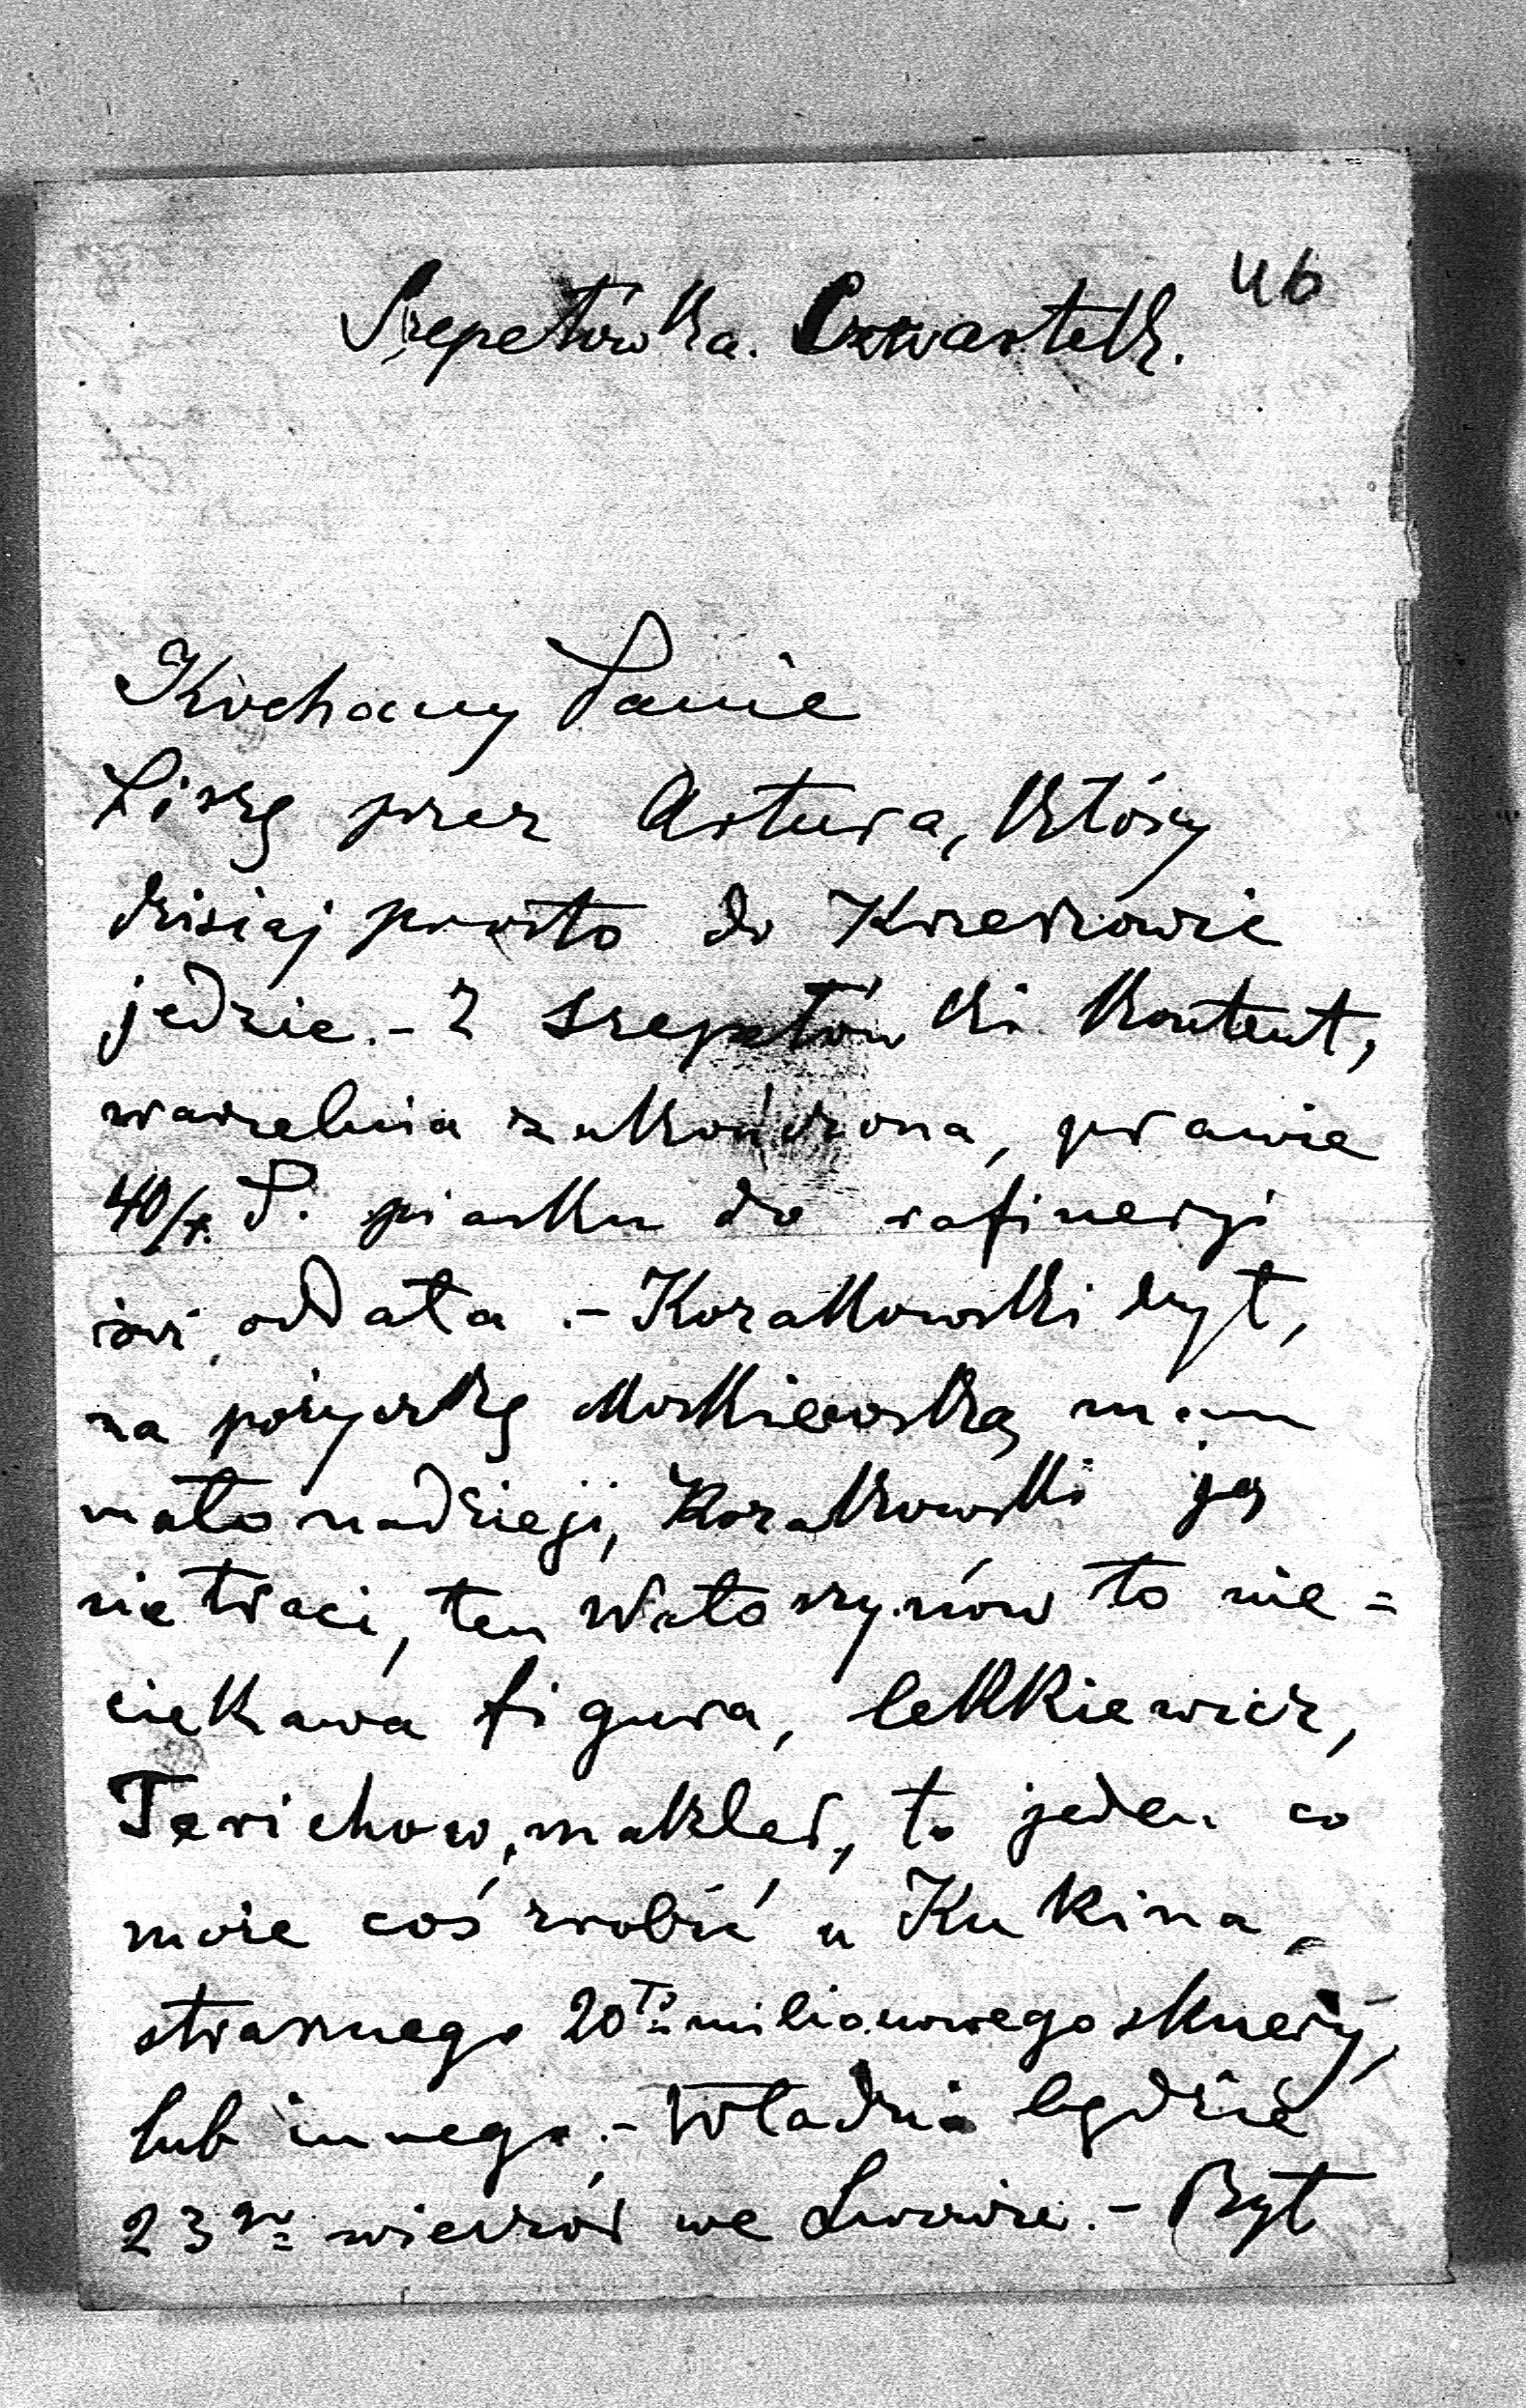 46
Szepetówka. Czwartek.
Kochany Panie
Piszę przez Artura, który
dzisiaj prosto do Krzeszowic
jedzie. - Z Szepetówki kontent,
warzelnia zukończona, prawie
40/t. P. piasku do rafineryi
już oddała. - Kozakowski był,
na pożyczkę Moskiewską mam
mało nadzieji, Kozakowski jej
nie traci, ten Wołoszynów to nie=
ciekawa figura, lekkiewicz,
Terichow, makler, to jeden co
może coś zrobić u Kukina,
strasznego 20to milionowego sknery,
lub innego. - Władzio będzie
23go wieczór we Lwowie. - Był